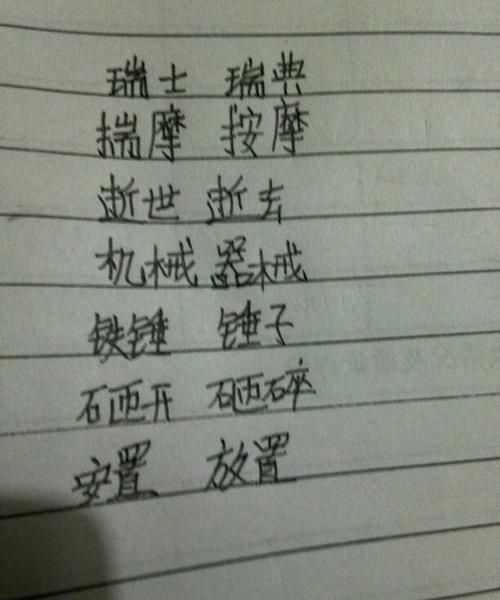 瑞士 瑞典
揣摩 按摩
逝世 逝去
机械 器械
铁锤 锤子
砸开 砸碎
安置 放置